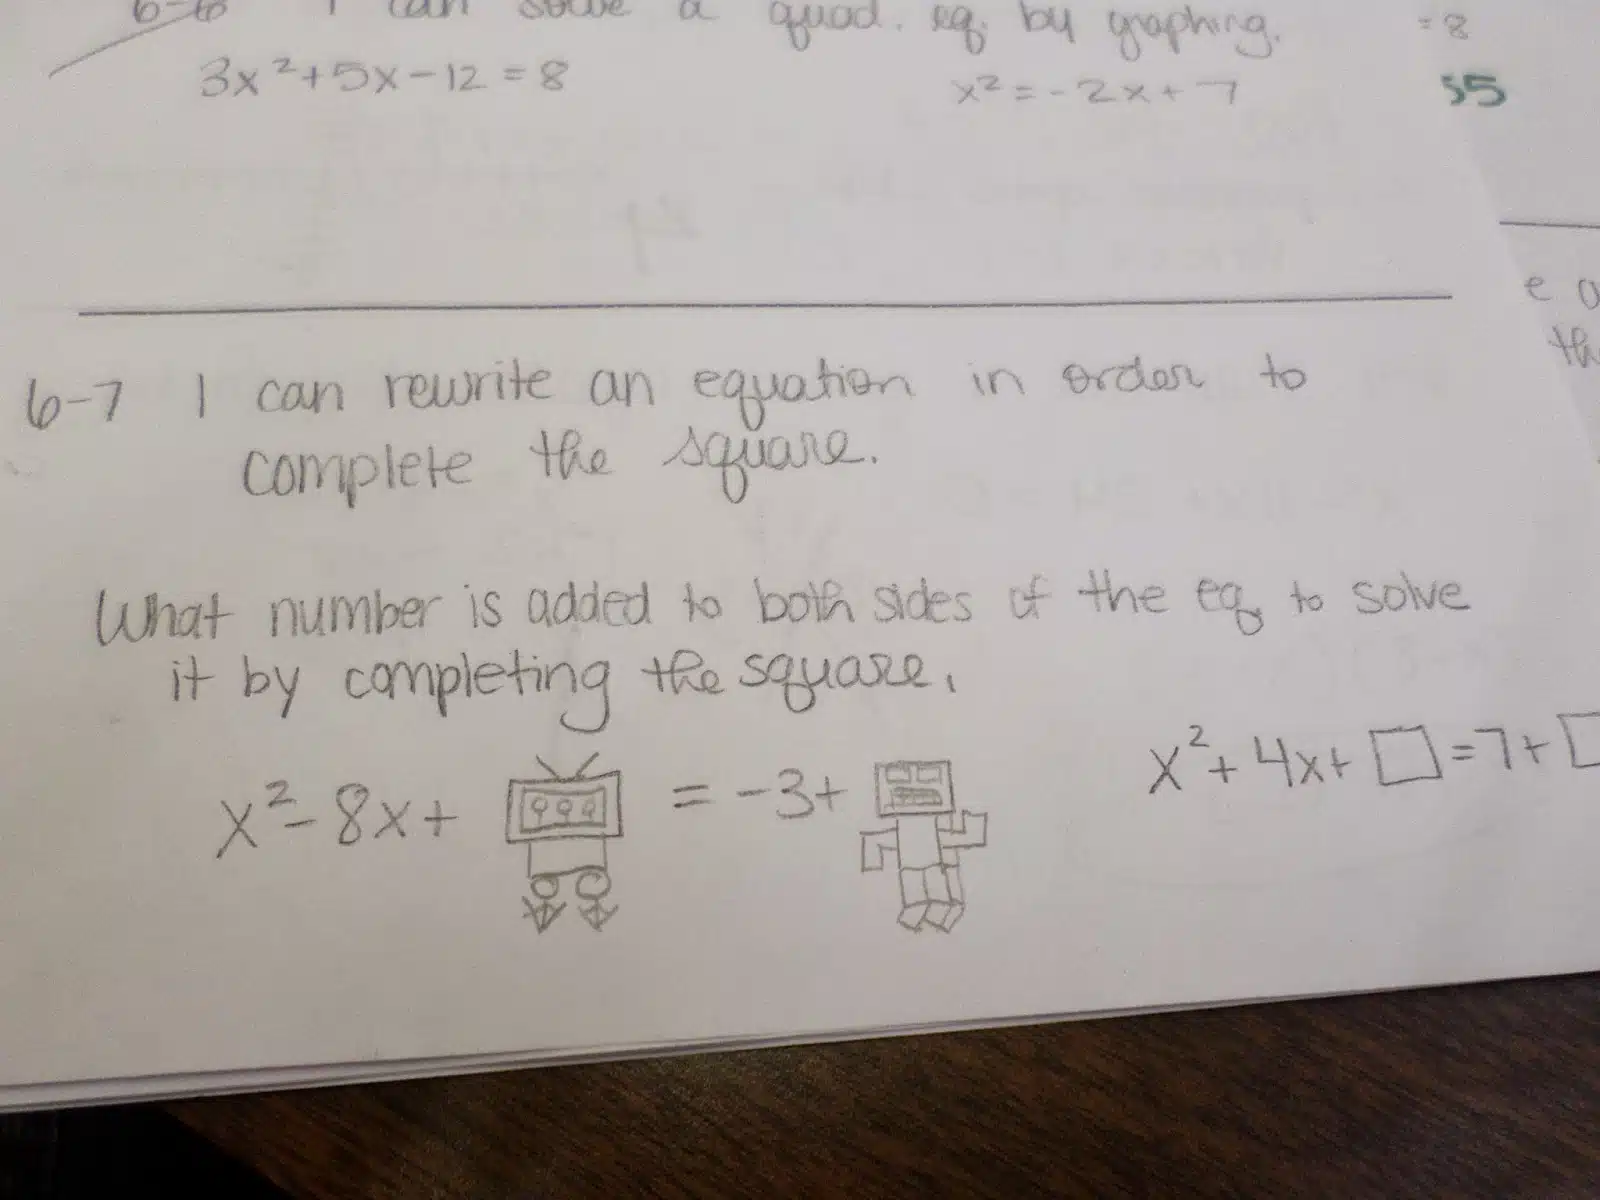 6-6 I can solve a quad. eq. by graphing.
3x²+5x-12=8
x²=-2x+7
=8
55
6-7 I can rewrite an equation in order to
complete the square.
What number is added to both sides of the eq. to solve
it by completing the square.
x²-8x+ = -3+
x²+4x+□=7+□
e
the